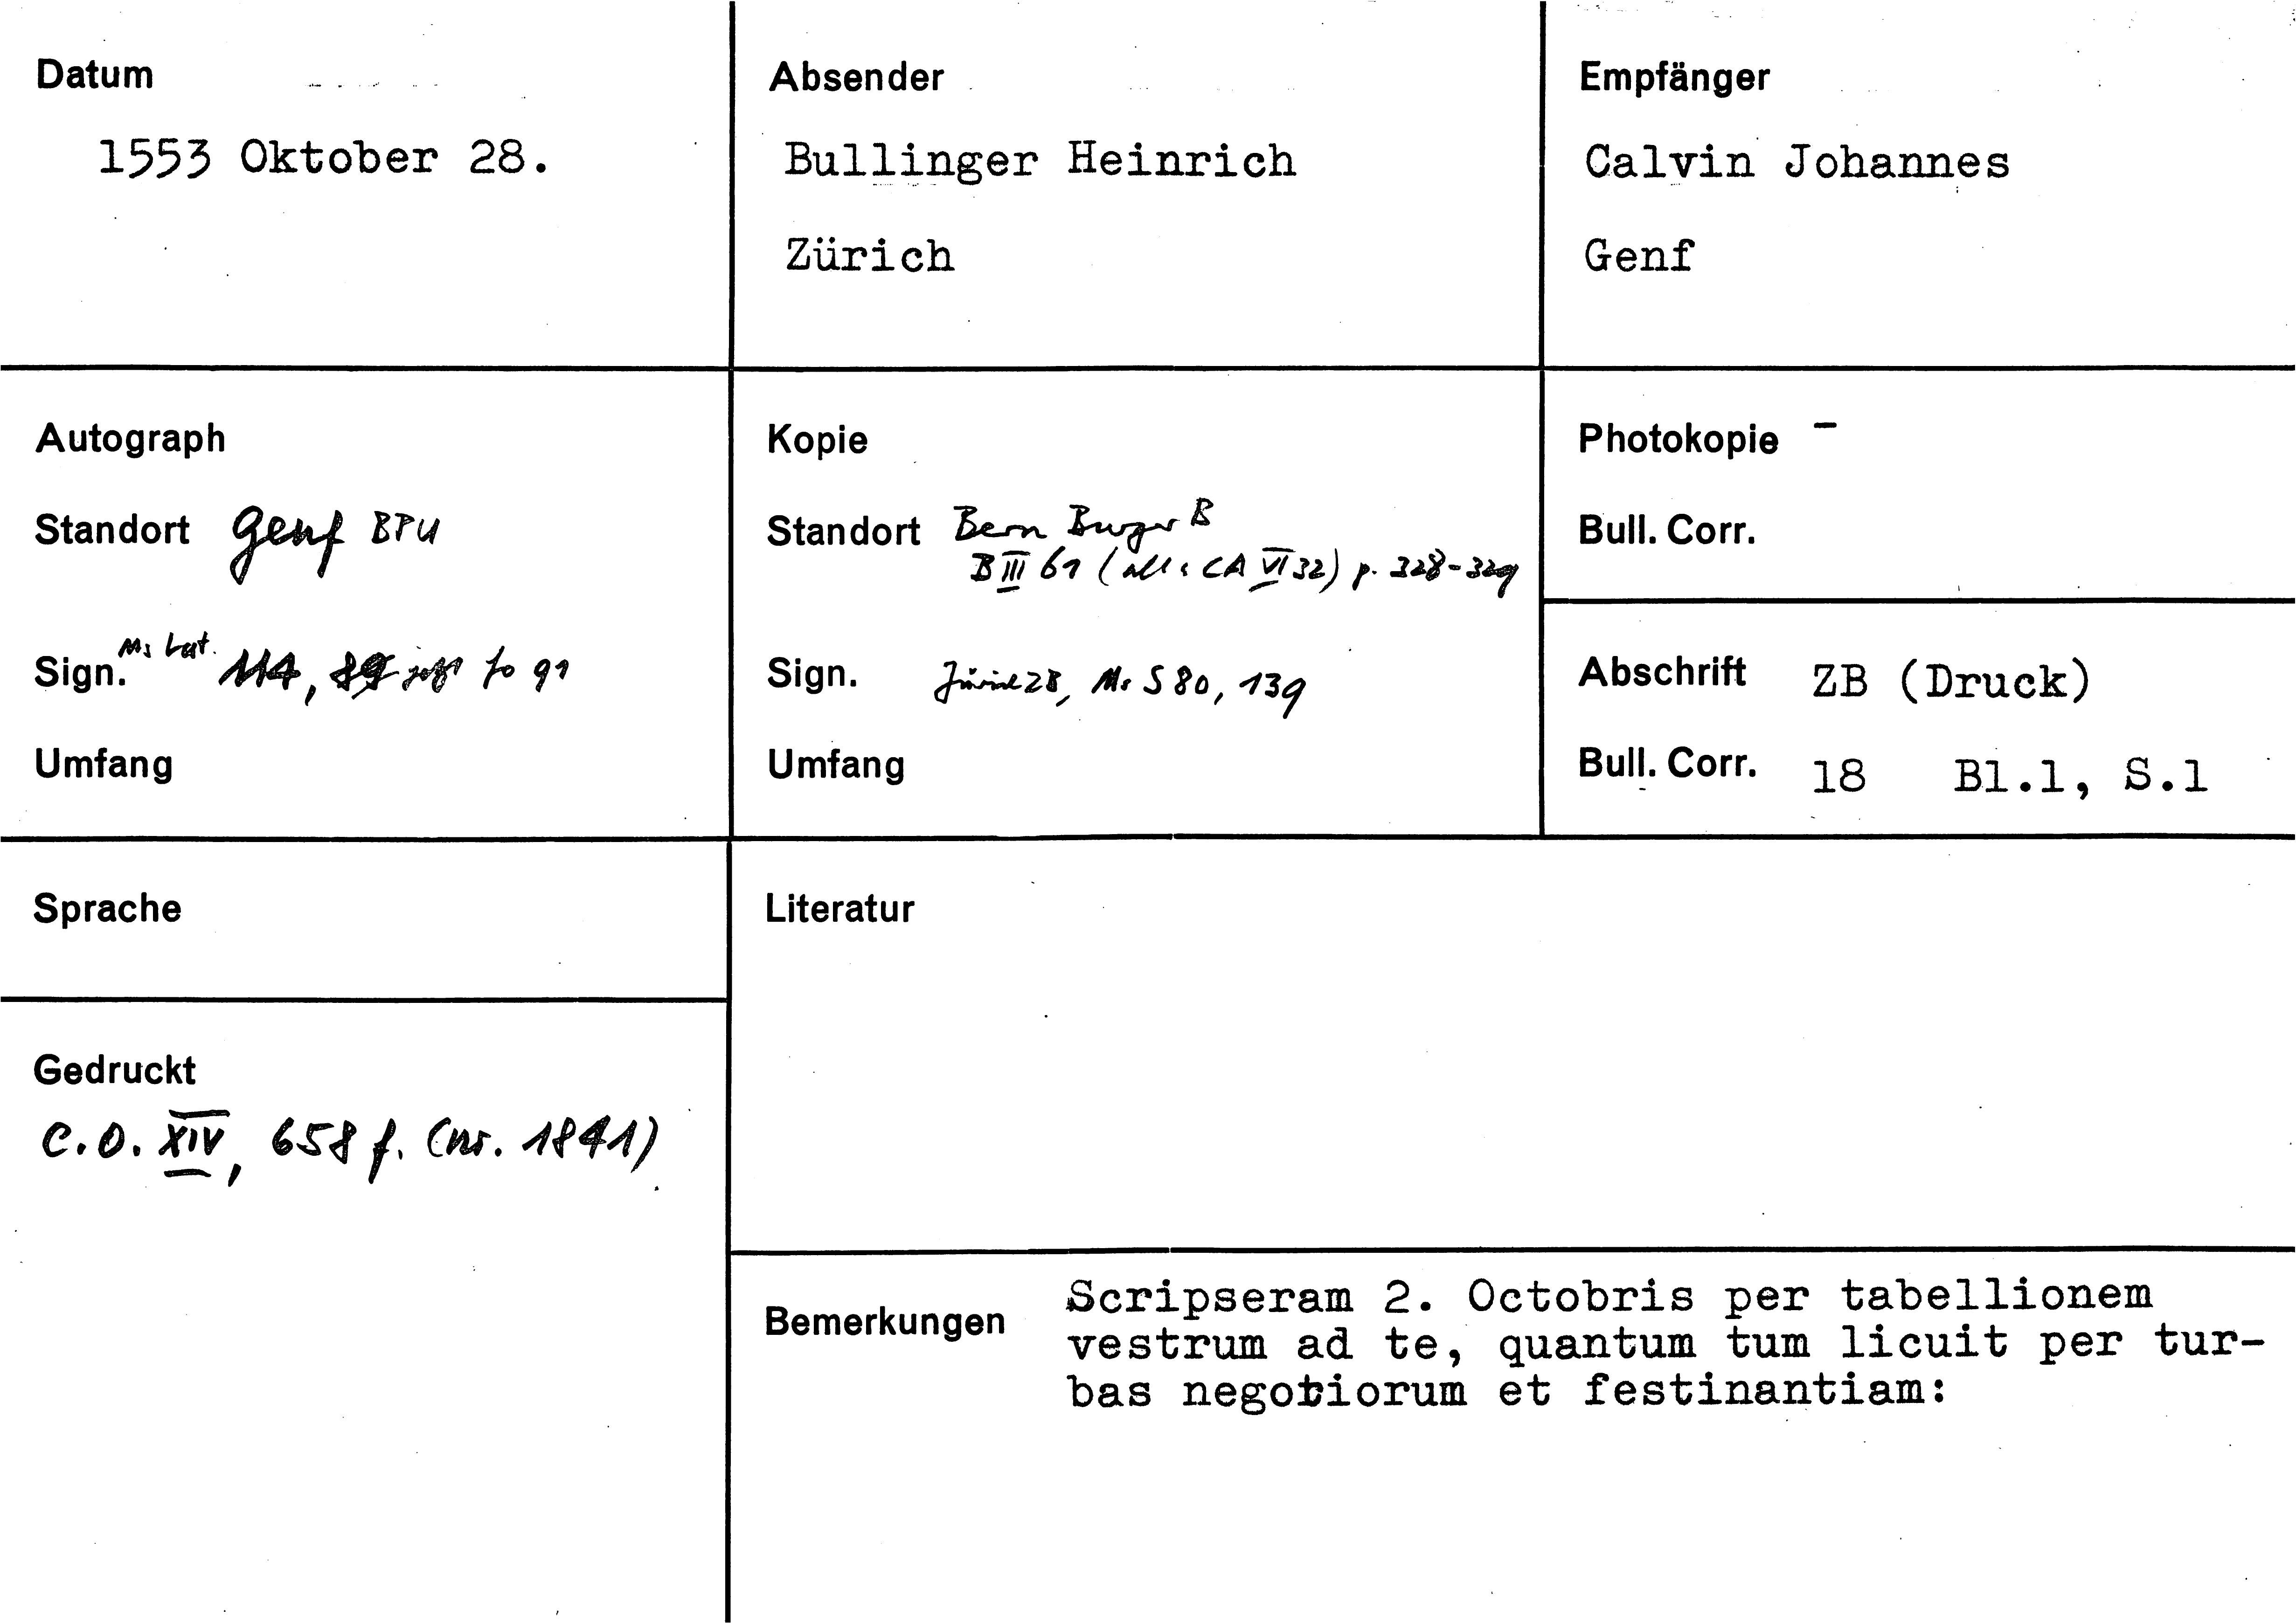 Datum
1553 Oktober 28.
Absender
Bullinger Heinrich
Zürich
Empfänger
Calvin Johannes
Genf
Autograph
Standort Genf BPU
Sign. Ms Lat. 114, 89 jetzt fo 91
Umfang
Kopie
Standort Bern Burger B
B III 61 ( CA VI 32) p. 328-329
Sign. Zürich ZB, Ms S 80, 139
Umfang
Photokopie -
Bull. Corr.
Abschrift ZB (Druck)
Bull. Corr. 18 Bl.1, S.1
Sprache
Gedruckt
C.O. XIV, 658 f. (nr. 1841)
Literatur
Bemerkungen
Scripseram 2. Octobris per tabellionem
vestrum ad te, quantum tum licuit per tur-
bas negotiorum et festinantiam: